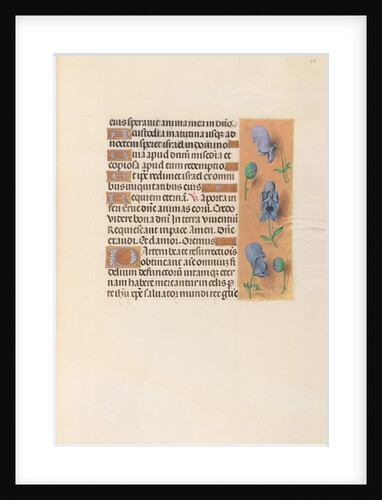 eius speravit anima mea in dño.
A custodia matutina usqz ad
noctem speret israel in domino.
Quia apud dnm̃ misc̃dia et
copiosa apud eum redemptio.
Et ip̃e redimet israel ex omni
bus iniquitatibus eius.
Requiem eternã. V. A porta in
feri Erue dñe animas eorũ. Credo
videre bona dnĩ In terra viventiũ
Requiescant in pace Amen. Dñe
exaudi. Et clamor. Oremus
Partem beate resurrectiois
obtineant aĩe omniũ fi
delium defunctorũ vitamqz eter
nam habere mereantur in celis p
te ihũ xp̃e salvator mundi rex glie